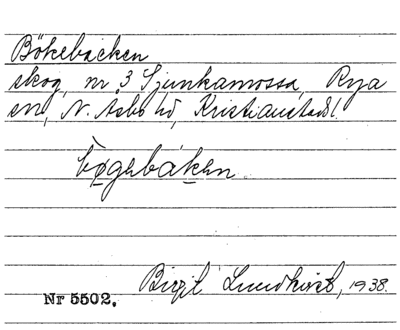 Bökebacken
skog, nr 3 Sjunkamossa, Rya
sn, N. Åsbo hd, Kristianstads l.
bø̱gebáḵen.
Birgit Lundkvist, 1938.
Nr 5502.